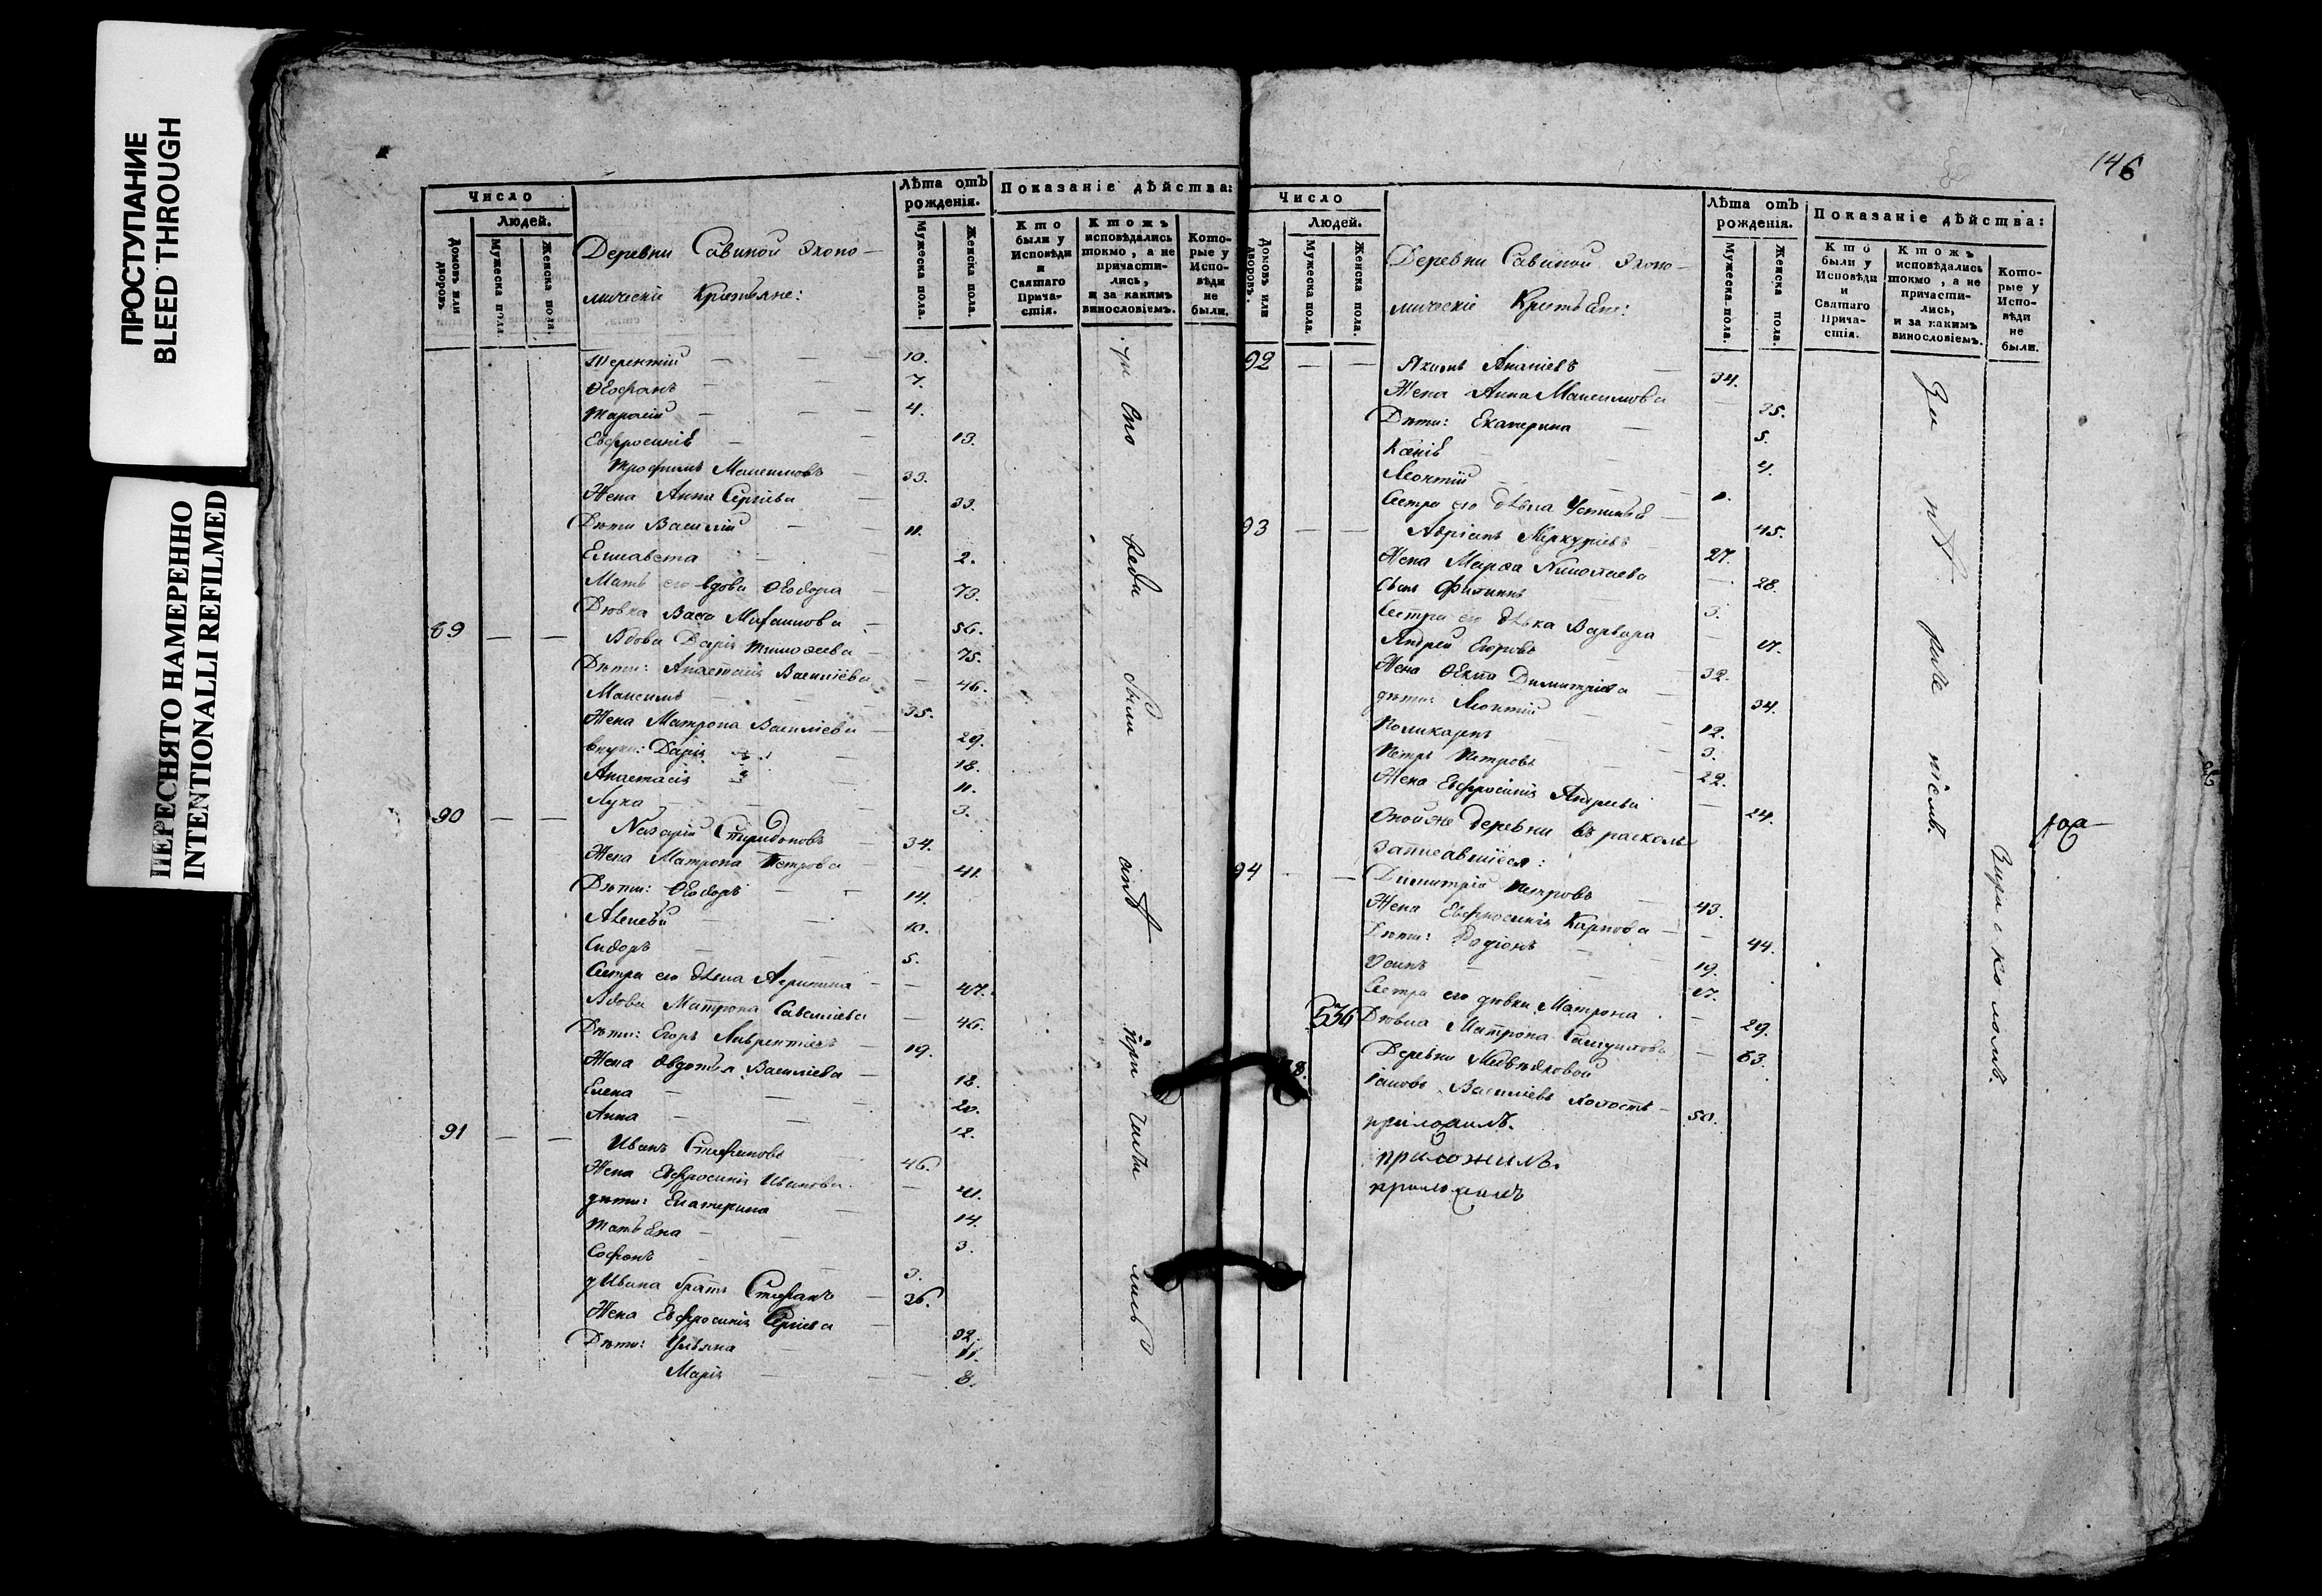 ПРОСТУПАНИЕ
BLEED THROUGH
ПЕРЕСНЯТО НАМЕРЕННО
INTENTIONALLI REFILMED
Число
Людей.
Домовъ или дворовъ
Мужеска пола.
Женска пола.
Деревни Савиной Эконо-
мическіе Крестьяне:
Лѣта отъ рожденія.
Мужеска пола.
Женска пола.
Показаніе дѣйства:
Кто были у Исповѣди и Святаго Прича-стія.
Ктожъ исповѣдались токмо, а не причасти-лись, и за какимъ винословіемъ.
Кото-рые у Испо-вѣди не были.
Терентій — 10.
Ѳеофанъ — 7.
Тарасій — 4.
Евфросинія — 13.
Трофимъ Максимовъ — 33.
Жена Анна Сергіева — 33.
Дѣти Василій — 11.
Елисавета — 2.
Мать его вдова Ѳеодора — 73.
Дѣвка Васса — 56.
89 — — Вдова Дарія Тимоѳеева — 75.
Дѣти: Анастасія Василіева — 46.
Максимъ — 35.
Жена Матрона Василіева — 29.
внуки: Дарія — 18.
Анастасія — 11.
Лука — 3.
90 — — Назарій Спиридоновъ — 34.
Жена Матрона Петрова — 41.
Дѣти: Ѳеодоръ — 14.
Алексѣй — 10.
Сидоръ — 5.
Сестра его дѣвка Агрипина — 47.
Вдова Матрона Савеліева — 46.
Дѣти: Егоръ Лаврентіевъ — 19.
Жена Овдотья Василіева — 18.
Елена — 20.
Анна — 12.
91 — — Иванъ Стефановъ — 46.
Жена Евфросинія Иванова — 41.
дѣти: Екатерина — 14.
Татьяна — 3.
Софонъ — 3.
у Ивана братъ Стефанъ — 36.
Жена Евфросинія Сергіева — 32.
Дѣти: Ульяна — 11.
Марія — 8.
146
Число
Людей.
Домовъ или дворовъ.
Мужеска пола.
Женска пола.
Деревни Савиной Эконо-
мическіе Крестьяне:
Лѣта отъ рожденія.
Мужеска пола.
Женска пола.
Показаніе дѣйства:
Кто были у Исповѣди и Святаго Прича-стія.
Ктожъ исповѣдались токмо, а не причасти-лись, и за какимъ винословіемъ.
Кото-рые у Испо-вѣди не были.
92 — — Якимъ Ананіевъ — 34.
Жена Анна Максимова — 35.
Дѣти: Екатерина — 5.
Ксенія — 4.
Леонтій — 1.
Сестра его дѣвка Устинья — 45.
93 — — Авріанъ Меркуріевъ — 27.
Жена Марѳа Николаева — 28.
Сынъ Филиппъ — 3.
Сестра его дѣвка Варвара — 17.
Андрей Егоровъ — 32.
Жена Ѳекла Димитріева — 34.
дѣти: Леонтій — 12.
Поликарпъ — 3.
Петръ Петровъ — 22.
Жена Евфросинія Андреева — 24.
Оной же деревни въ расколъ
записавшіеся:
94 — — Димитрій Петровъ — 43.
Жена Евфросинія Карпова — 44.
Дѣти: Родіонъ — 19.
Осипъ — 17.
Сестра его дѣвка Матрона — 29.
536 Дѣвка Матрона — 63.
Іаковъ Василіевъ холостъ — 50.
приложилъ.
приложилъ.
приложилъ
За расколомъ.